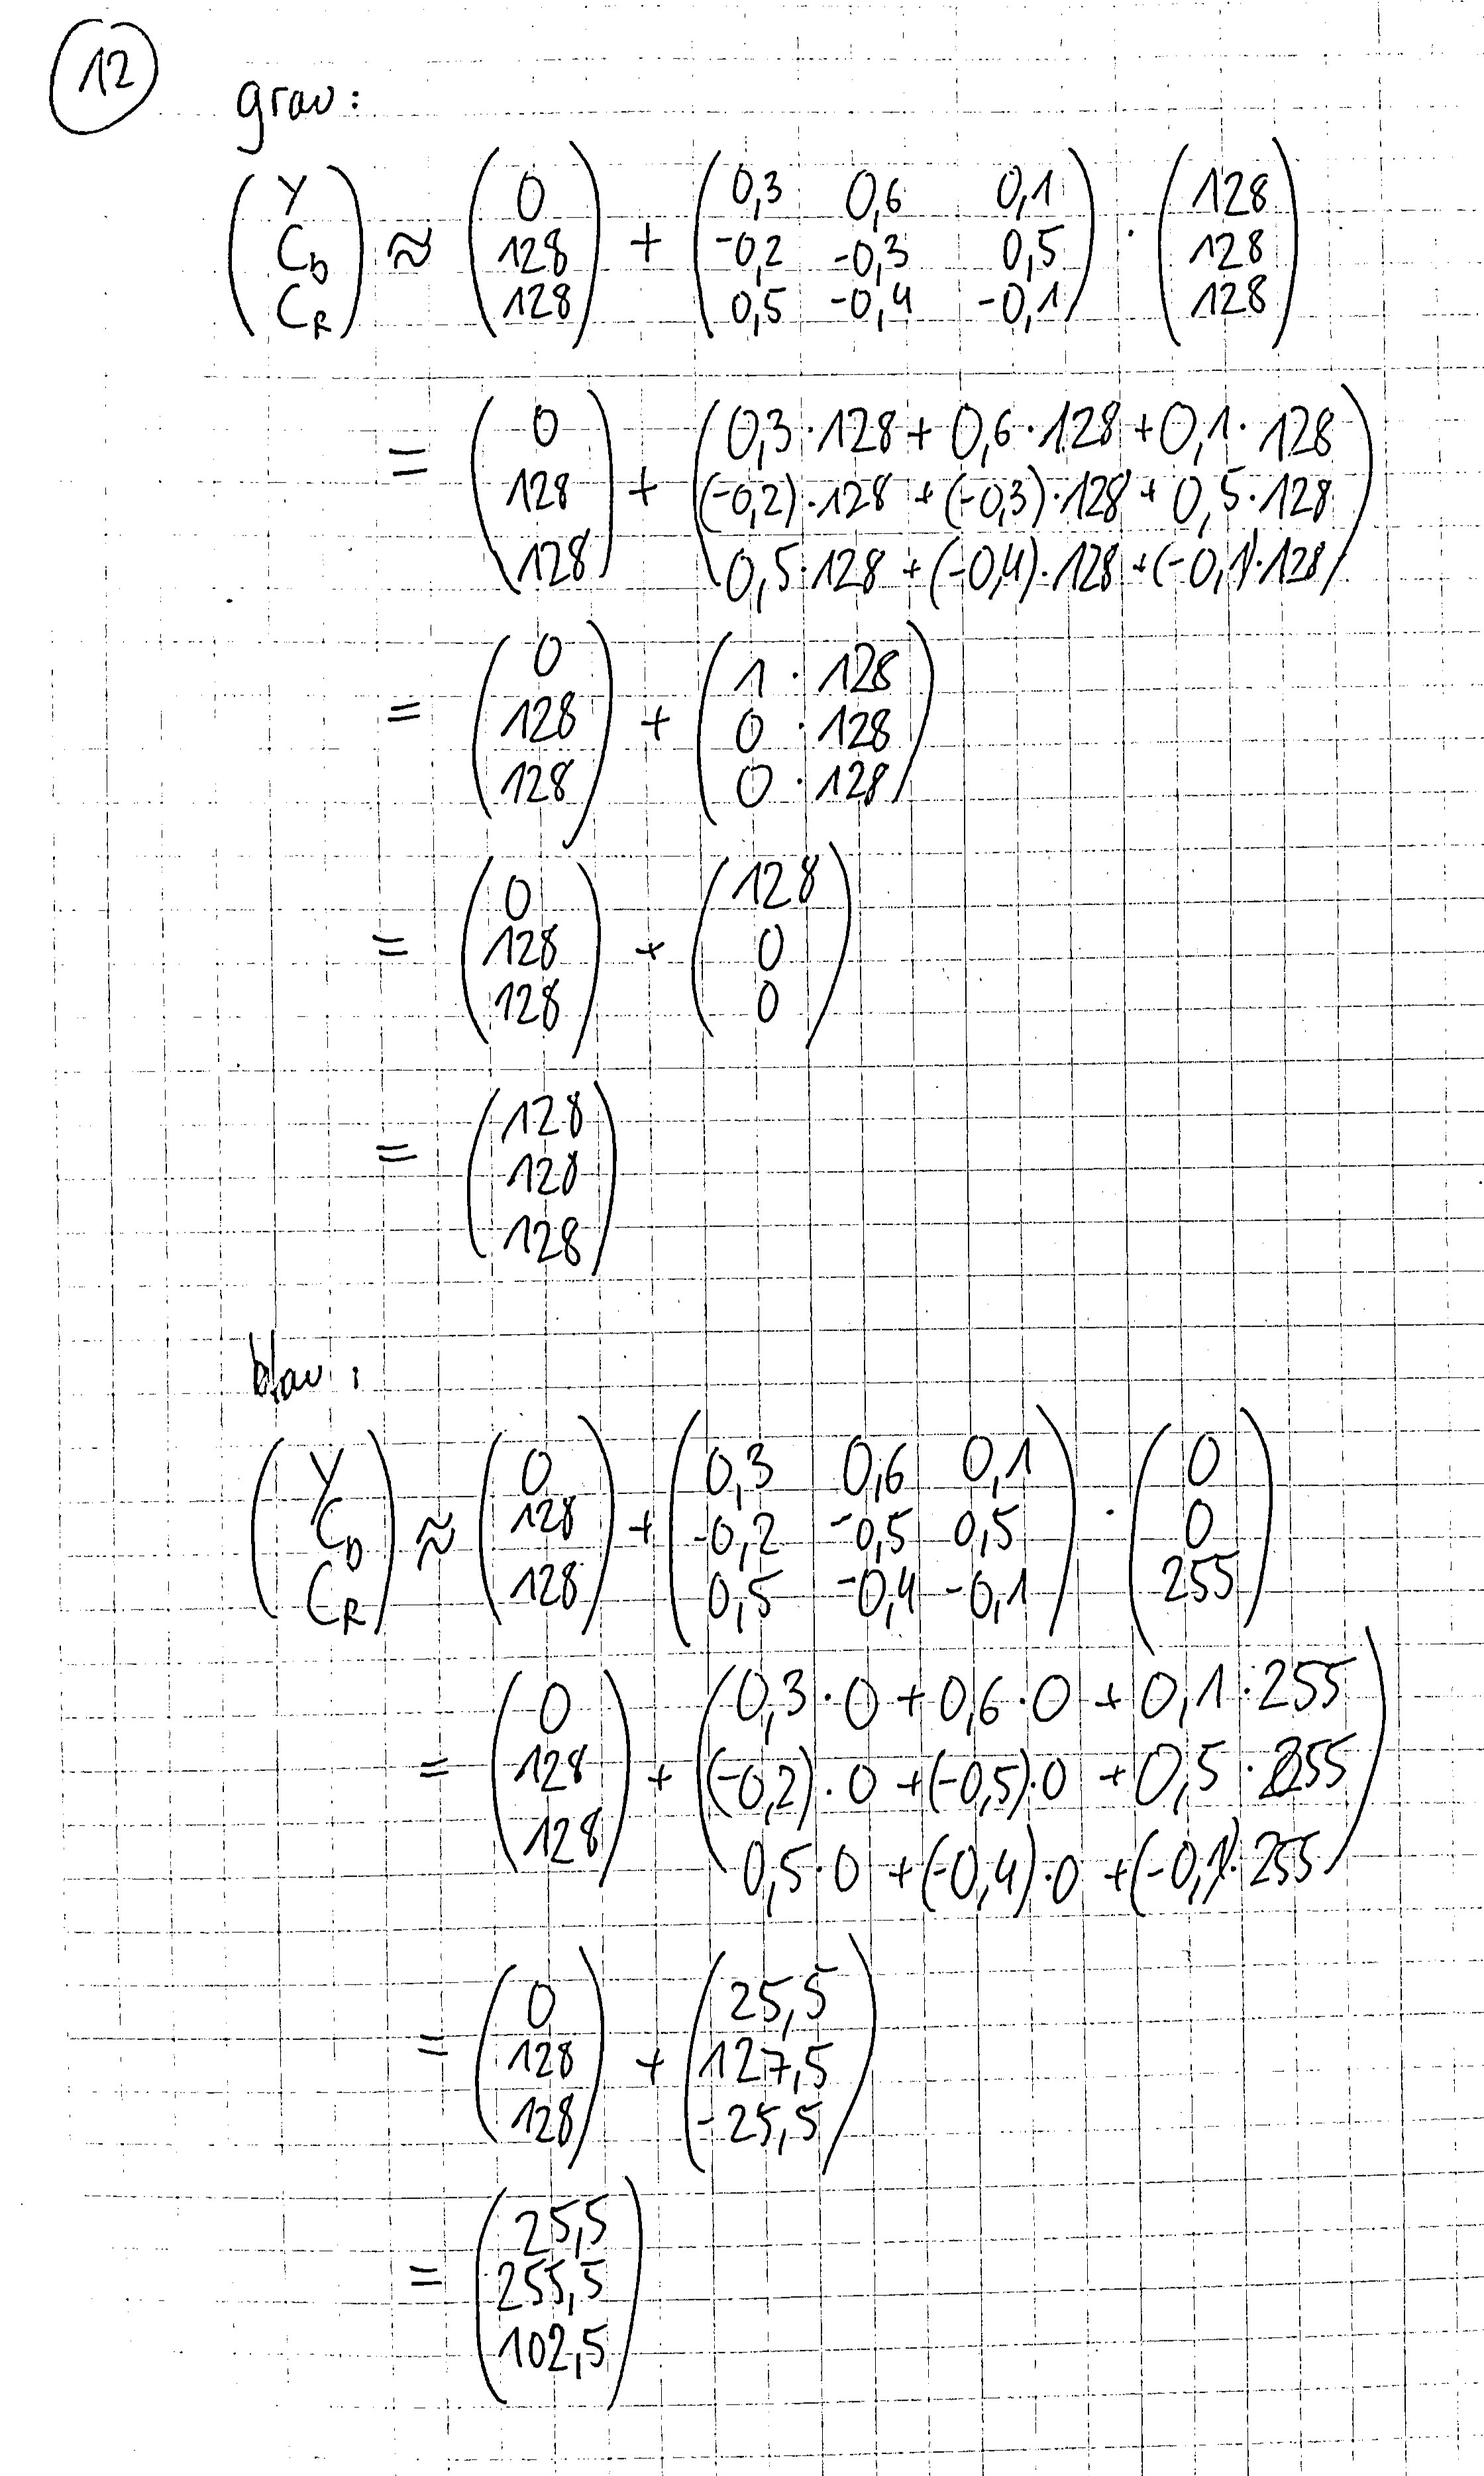 12
grau:
(Y C_b C_R) ≈ (0 128 128) + (0,3 0,6 0,1 / -0,2 -0,3 0,5 / 0,5 -0,4 -0,1) · (128 128 128)
= (0 128 128) + (0,3·128 + 0,6·128 + 0,1·128 / (-0,2)·128 + (-0,3)·128 + 0,5·128 / 0,5·128 + (-0,4)·128 + (-0,1)·128)
= (0 128 128) + (1·128 / 0·128 / 0·128)
= (0 128 128) + (128 0 0)
= (128 128 128)
blau:
(Y C_b C_R) ≈ (0 128 128) + (0,3 0,6 0,1 / -0,2 -0,5 0,5 / 0,5 -0,4 -0,1) · (0 0 255)
= (0 128 128) + (0,3·0 + 0,6·0 + 0,1·255 / (-0,2)·0 + (-0,5)·0 + 0,5·255 / 0,5·0 + (-0,4)·0 + (-0,1)·255)
= (0 128 128) + (25,5 127,5 -25,5)
= (25,5 255,5 102,5)